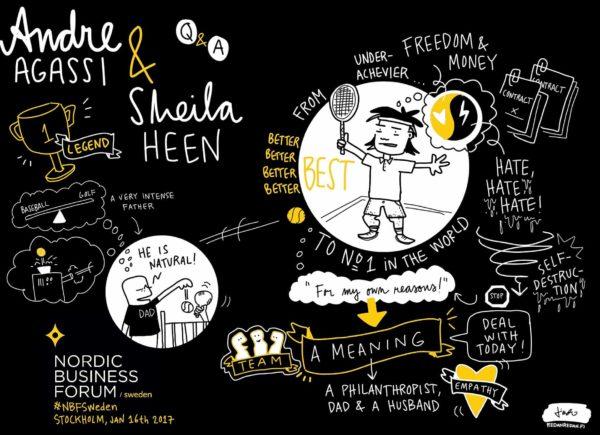 Andre
AGASSI
&
Sheila
HEEN
Q&A
1
LEGEND
BASEBALL
GOLF
A VERY INTENSE
FATHER
HE IS
NATURAL!
DAD
NORDIC
BUSINESS
FORUM / sweden
#NBFSweden
STOCKHOLM, JAN 16th 2017
FROM
UNDER-
ACHEVIER...
FREEDOM &
MONEY
CONTRACT
X
CONTRACT
BETTER
BETTER
BETTER
BETTER
BEST
TO No1 IN THE WORLD
HATE,
HATE,
HATE!
SELF-
DESTRUC-
TION
STOP
"For my own reasons!"
DEAL
WITH
TODAY!
TEAM
A MEANING
A PHILANTHROPIST,
DAD & A HUSBAND
EMPATHY
REDANREDAN.FI